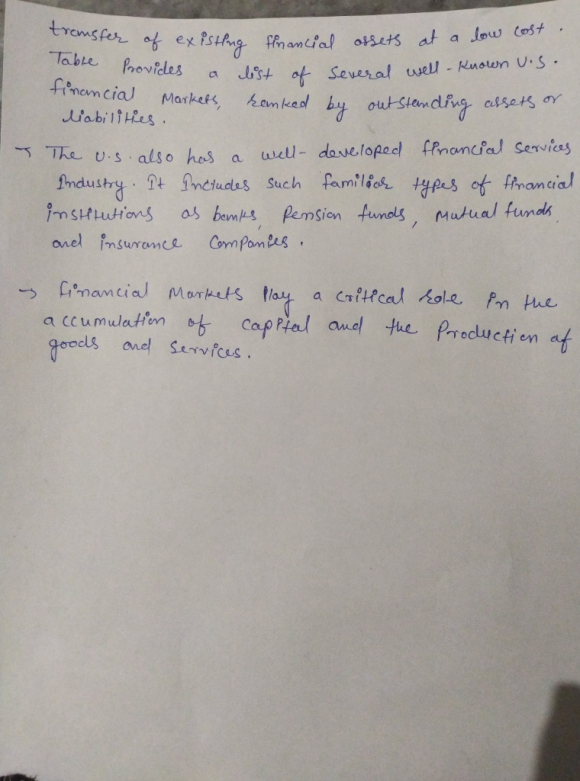 transfer of existing financial assets at a low cost.
Table Provides a list of several well-known U.S.
financial Markets, ranked by outstanding assets or
liabilities.
→ The U.S. also has a well-developed financial services
Industry. It Includes such familiar types of financial
institutions as banks, Pension funds, Mutual funds
and insurance Companies.
→ financial Markets Play a critical role in the
accumulation of capital and the Production of
goods and services.